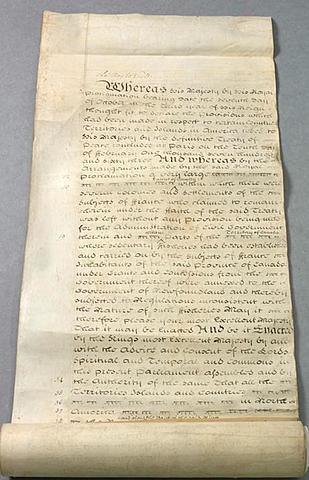 Whereas His Majesty by His Royal
Proclamation bearing Date the Seventh Day
of October in the Third year of His Reign
thought fit to declare the Provisions which
had been made in respect to certain
Territories and Islands in America ceded to
His Majesty by the definitive Treaty of
Peace concluded at Paris on the Tenth day
of February One thousand Seven hundred
and sixty three And whereas by the
Arrangements made by the said Royal
Proclamation a very large
within which there were
several Colonies and Settlements of the
Subjects of France who claimed to remain
therein under the Faith of the said Treaty
was left without any Provision being made
for the Administration of Civil Government
therein and Parts of the
where sedentary Fisheries had been established
and carried on by the Subjects of France
Inhabitants of the said Province of Canada
under Grants and Concessions from the
Government thereof were annexed to the
Government of Newfoundland and thereby
subjected to Regulations inconsistent with
the Nature of such Fisheries May it
therefore please your most Excellent Majesty
That it may be Enacted And be it Enacted
by the Kings most Excellent Majesty by and
with the Advice and Consent of the Lords
Spiritual and Temporal and Commons in
this present Parliament assembled and by
the Authority of the same That all the
Territories Islands and Countries
in North
America